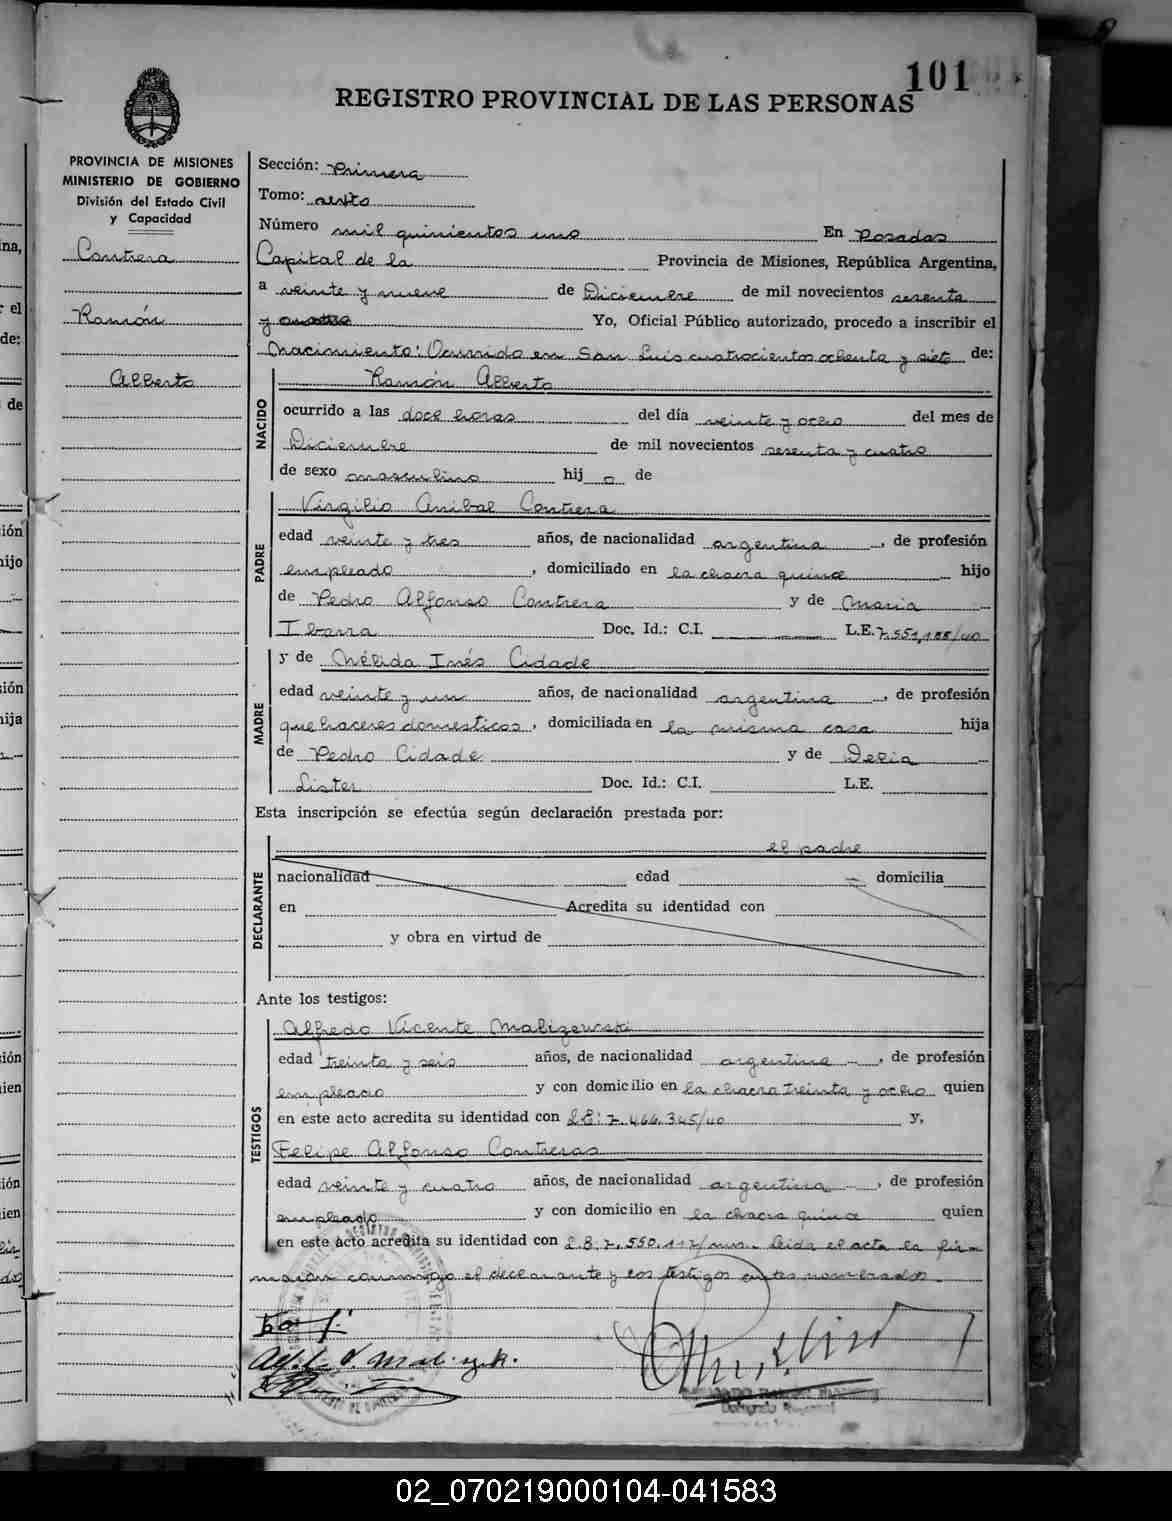 101
REGISTRO PROVINCIAL DE LAS PERSONAS
PROVINCIA DE MISIONES
MINISTERIO DE GOBIERNO
División del Estado Civil
y Capacidad
Contrera
Ramón
Alberto
Sección: Primera
Tomo: sexto
Número mil quinientos uno En Posadas
Capital de la Provincia de Misiones, República Argentina,
a veinte y nueve de Diciembre de mil novecientos sesenta
y cuatro Yo, Oficial Público autorizado, procedo a inscribir el
Nacimiento: Ocurrido en San Luis cuatrocientos ochenta y siete de:
NACIDO
Ramón Alberto
ocurrido a las doce horas del día veinte y ocho del mes de
Diciembre de mil novecientos sesenta y cuatro
de sexo masculino hij o de
PADRE
Virgilio Anibal Contrera
edad veinte y tres años, de nacionalidad argentina, de profesión
empleado, domiciliado en la chacra quince hijo
de Pedro Alfonso Contrera y de Maria
Ibarra Doc. Id.: C.I. L.E. 7.551,188/40
MADRE
y de Nélida Inés Cidade
edad veinte y un años, de nacionalidad argentina, de profesión
quehaceres domesticos, domiciliada en la misma casa hija
de Pedro Cidade y de Delia
Lister Doc. Id.: C.I. L.E.
Esta inscripción se efectúa según declaración prestada por:
DECLARANTE
el padre
nacionalidad edad domicilia
en Acredita su identidad con
y obra en virtud de
Ante los testigos:
TESTIGOS
Alfredo Vicente Malizewski
edad treinta y seis años, de nacionalidad argentina, de profesión
empleado y con domicilio en la chacra treinta y ocho quien
en este acto acredita su identidad con L.E: 7.466.345/40 y,
Felipe Alfonso Contreras
edad veinte y cuatro años, de nacionalidad argentina, de profesión
empleado y con domicilio en la chacra quince quien
en este acto acredita su identidad con L.E: 7.550.117/ Leida el acta la fir-
maron conmigo el declarante y los testigos antes nombrados.
02_070219000104-041583